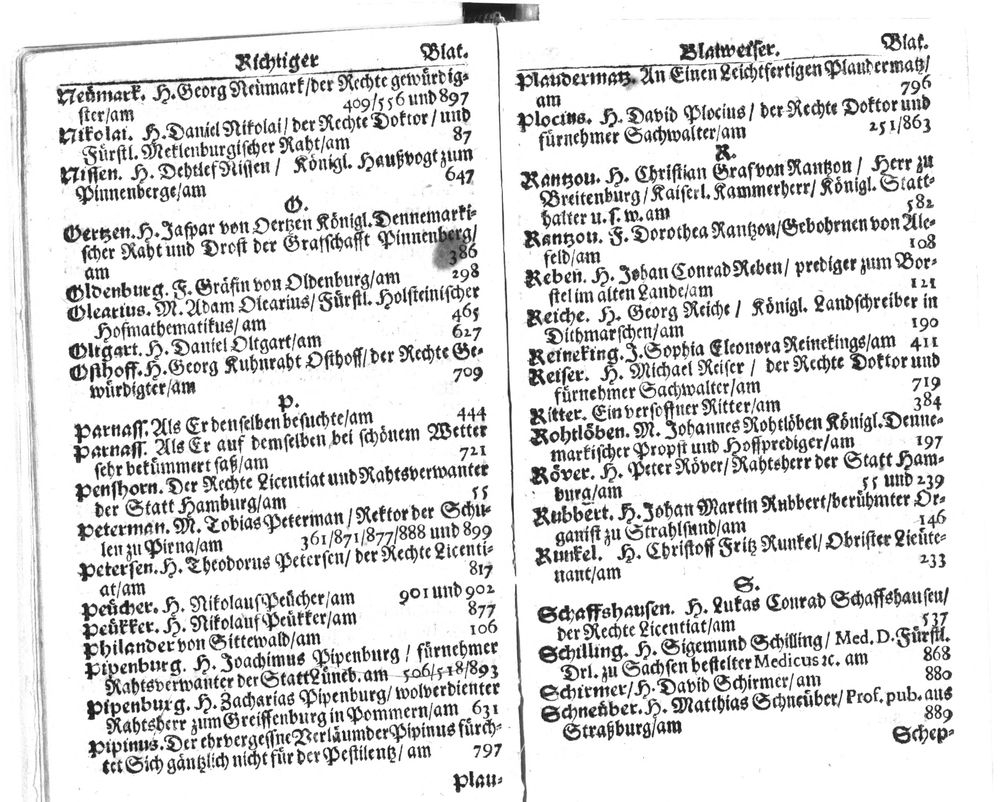 Richtiger Blat.
Neümark. H. Georg Neümark/der Rechte gewürdig-
ster/am 409/556 und 897
Nikolai. H. Daniel Nikolai/ der Rechte Doktor/ und
Fürstl. Meklenburgischer Raht/am 87
Nissen. H. Dehtlef Nissen/ Königl. Haußvogt zum
Pinnenberge/am 647
O.
Oertzen. H. Jaspar von Oertzen Königl. Dennemarki-
scher Raht und Drost der Grafschafft Pinnenberg/
am 386
Oldenburg. F. Gräfin von Oldenburg/am 298
Olearius. M. Adam Olearius/ Fürstl. Holsteinischer
Hofmathematikus/ am 465
Oltgart. H. Daniel Oltgart/am 627
Osthoff. H. Georg Kuhnraht Osthoff/der Rechte Ge-
würdigter/am 709
P.
Parnass. Als Er denselben besuchte/am 444
Parnass. Als Er auf demselben bei schönem Wetter
sehr bekümmert saß/am 721
Penshorn. Der Rechte Licentiat und Rahtsverwanter
der Statt Hamburg/am 55
Peterman. M. Tobias Peterman/ Rektor der Schu-
len zu Pirna/am 361/871/877/888 und 899
Petersen. H. Theodorus Petersen/ der Rechte Licenti-
at/am 817
Peücher. H. Nikolaus Peücher/am 901 und 902
Peükker. H. Nikolaus Peükker/am 877
Philander von Sittewald/am 106
Pipenburg. H. Joachimus Pipenburg/ fürnehmer
Rahtsverwanter der Statt Lüneb. am 506/518/893
Pipenburg. H. Zacharias Pipenburg/ wolverdienter
Rahtsherr zum Greiffenburg in Pommern/am 631
Pipinus. Der ehrvergessne Verläumder Pipinus fürch-
tet Sich gäntzlich nicht für der Pestilentz/ am 797
Plau-
Blatweiser. Blat.
Plaudermatz. An Einen Leichtfertigen Plaudermatz/
am 796
Plocius. H. David Plocius/ der Rechte Doktor und
fürnehmer Sachwalter/am 251/863
R.
Rantzou. H. Christian Graf von Rantzou/ Herr zu
Breitenburg/ Kaiserl. Kammerherr/ Königl. Statt-
halter u. s. w. am 582
Rantzou. F. Dorothea Rantzou/Gebohrnen von Ale-
feld/am 108
Reben. H. Johan Conrad Reben/ prediger zum Bor-
stel im alten Lande/am 121
Reiche. H. Georg Reiche/ Königl. Landschreiber in
Dithmarschen/am 190
Reineking. J. Sophia Eleonora Reinekings/am 411
Reiser. H. Michael Reiser/ der Rechte Doktor und
fürnehmer Sachwalter/am 719
Ritter. Ein versoffner Ritter/am 384
Rohtlöben. M. Johannes Rohtlöben Königl. Denne-
markischer Propst und Hoffprediger/am 197
Röver. H. Peter Röver/ Rahtsherr der Statt Ham-
burg/am 55 und 239
Rubbert. H. Johan Martin Rubbert/berühmter Or-
ganist zu Strahlsund/am 146
Runkel. H. Christoff Fritz Runkel/ Obrister Lieüte-
nant/am 233
S.
Schaffshausen. H. Lukas Conrad Schaffshausen/
der Rechte Licentiat/am 537
Schilling. H. Sigemund Schilling/ Med. D. Fürstl.
Drl. zu Sachsen bestelter Medicus ꝛc. am 868
Schirmer/ H. David Schirmer/am 880
Schneüber. H. Matthias Schneüber/ Prof. pub. aus
Straßburg/am 889
Schep-